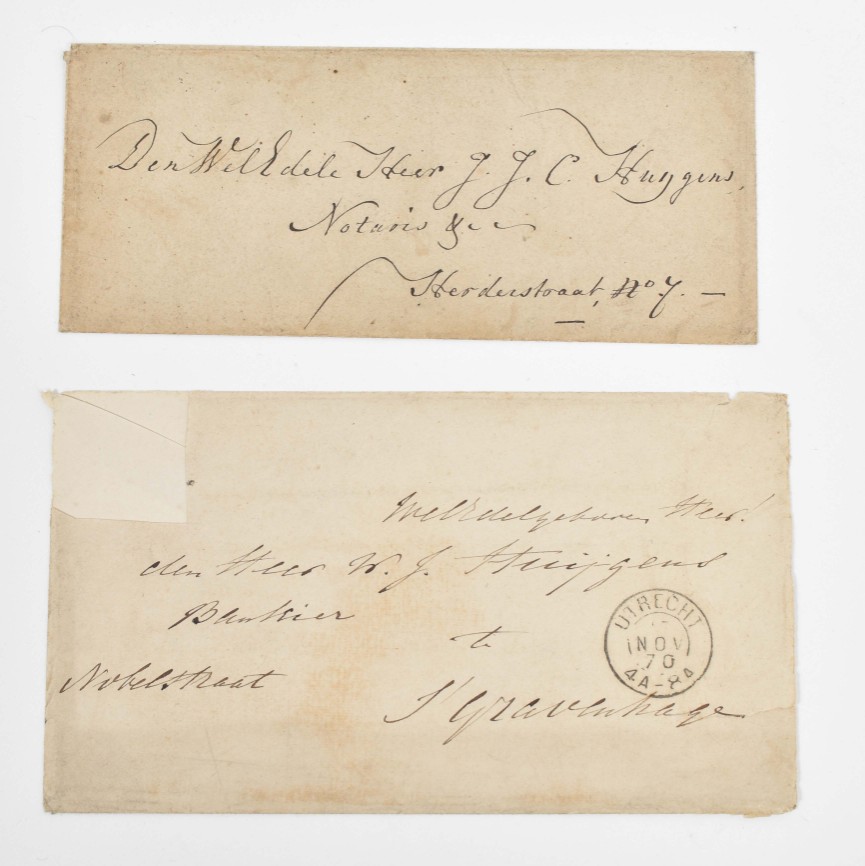 Den WelEdele Heer J. J. C. Huygens,
Notaris &c
Herderstraat, No 7. —
WelEdelgeboren Heer!
den Heer W. J. Huijgens
Bankier
te
Nobelstraat
S'Gravenhage
UTRECHT
1 NOV
70
4A-8A